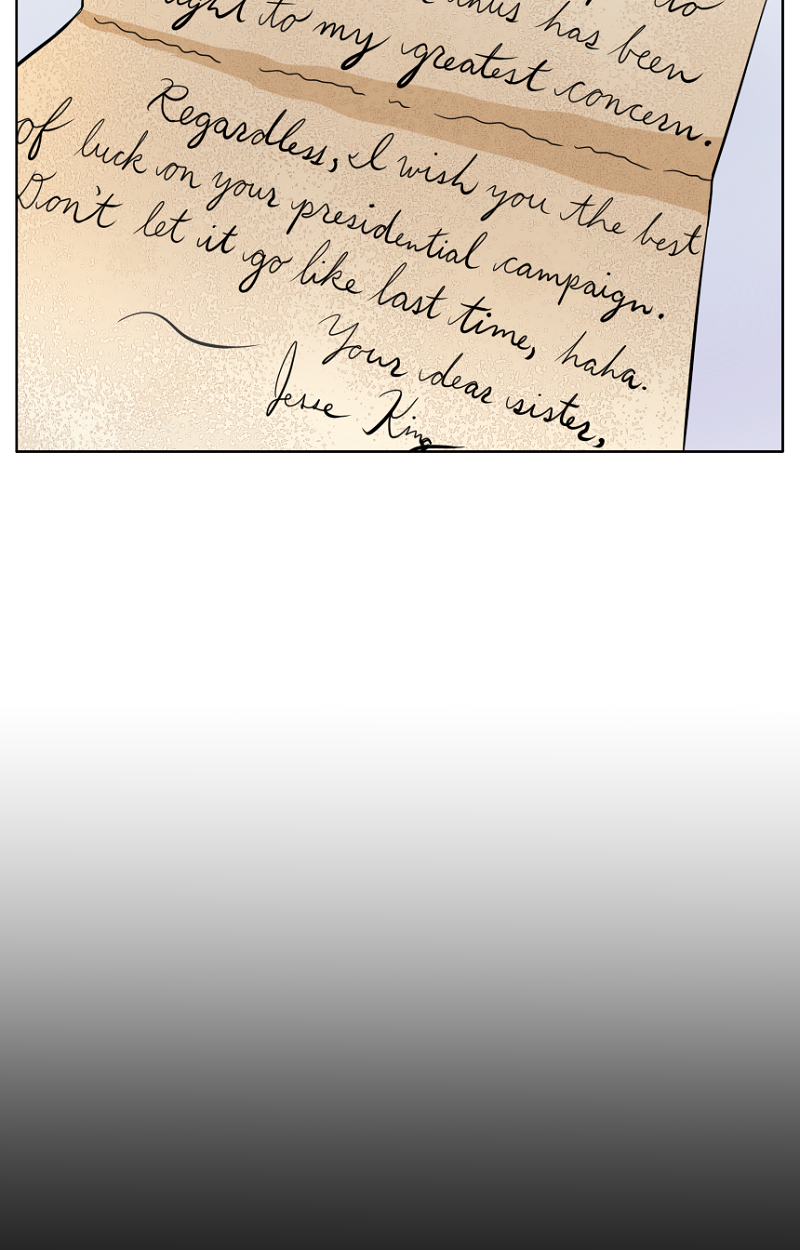 to
has been
to my greatest concern.
Regardless, I wish you the best
of luck on your presidential campaign.
Don't let it go like last time, haha.
Your dear sister,
Jesse King